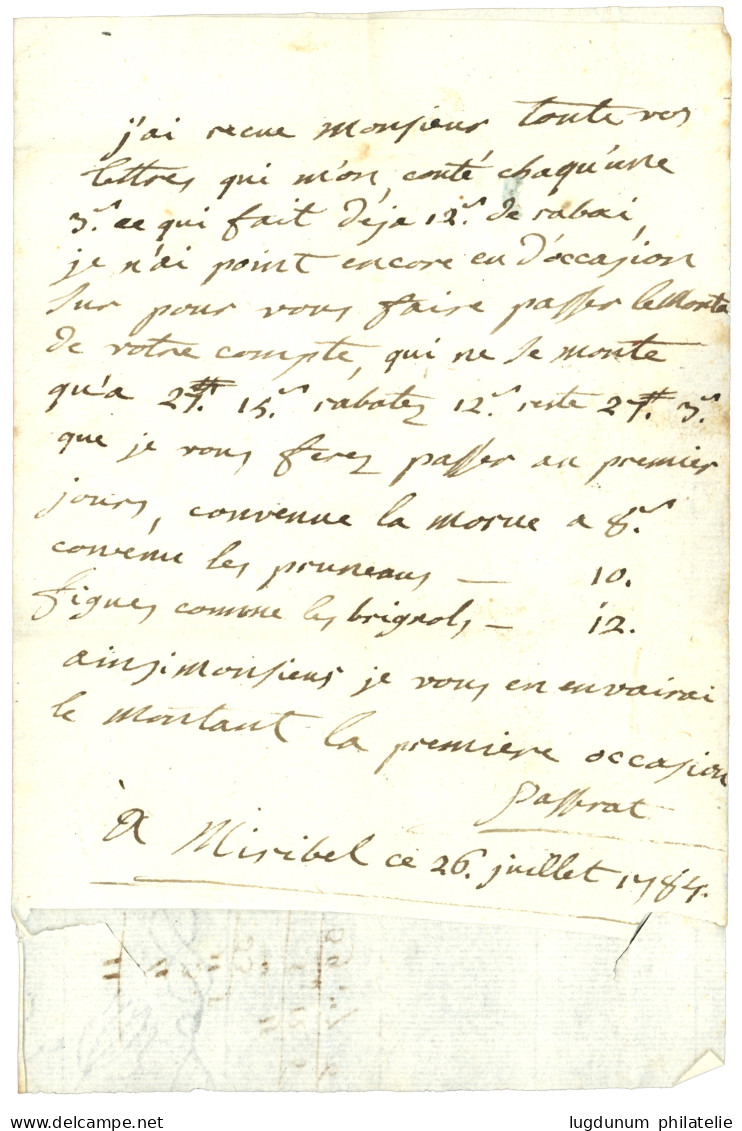 j'ai recue monsieur toute vos
lettres qui m'on couté chaqu'une
3.s ce qui fait deja 12.s de rabai
je n'ai point encore eu d'occasion
sur pour vous faire passer le Monta
de votre compte, qui ne se monte
qu'a 27.# 15.s rabatez 12.s reste 27.# 3.s
que je vous ferez passer au premier
jours, convenue la morue a 8.s
convenu les pruneaus — 10.
figues comme les brignols — 12.
ainsi monsieur je vous en envairai
le montant la premiere occasion
Passerat
À Miribel ce 26. juillet 1784.
lugdunum philatelie